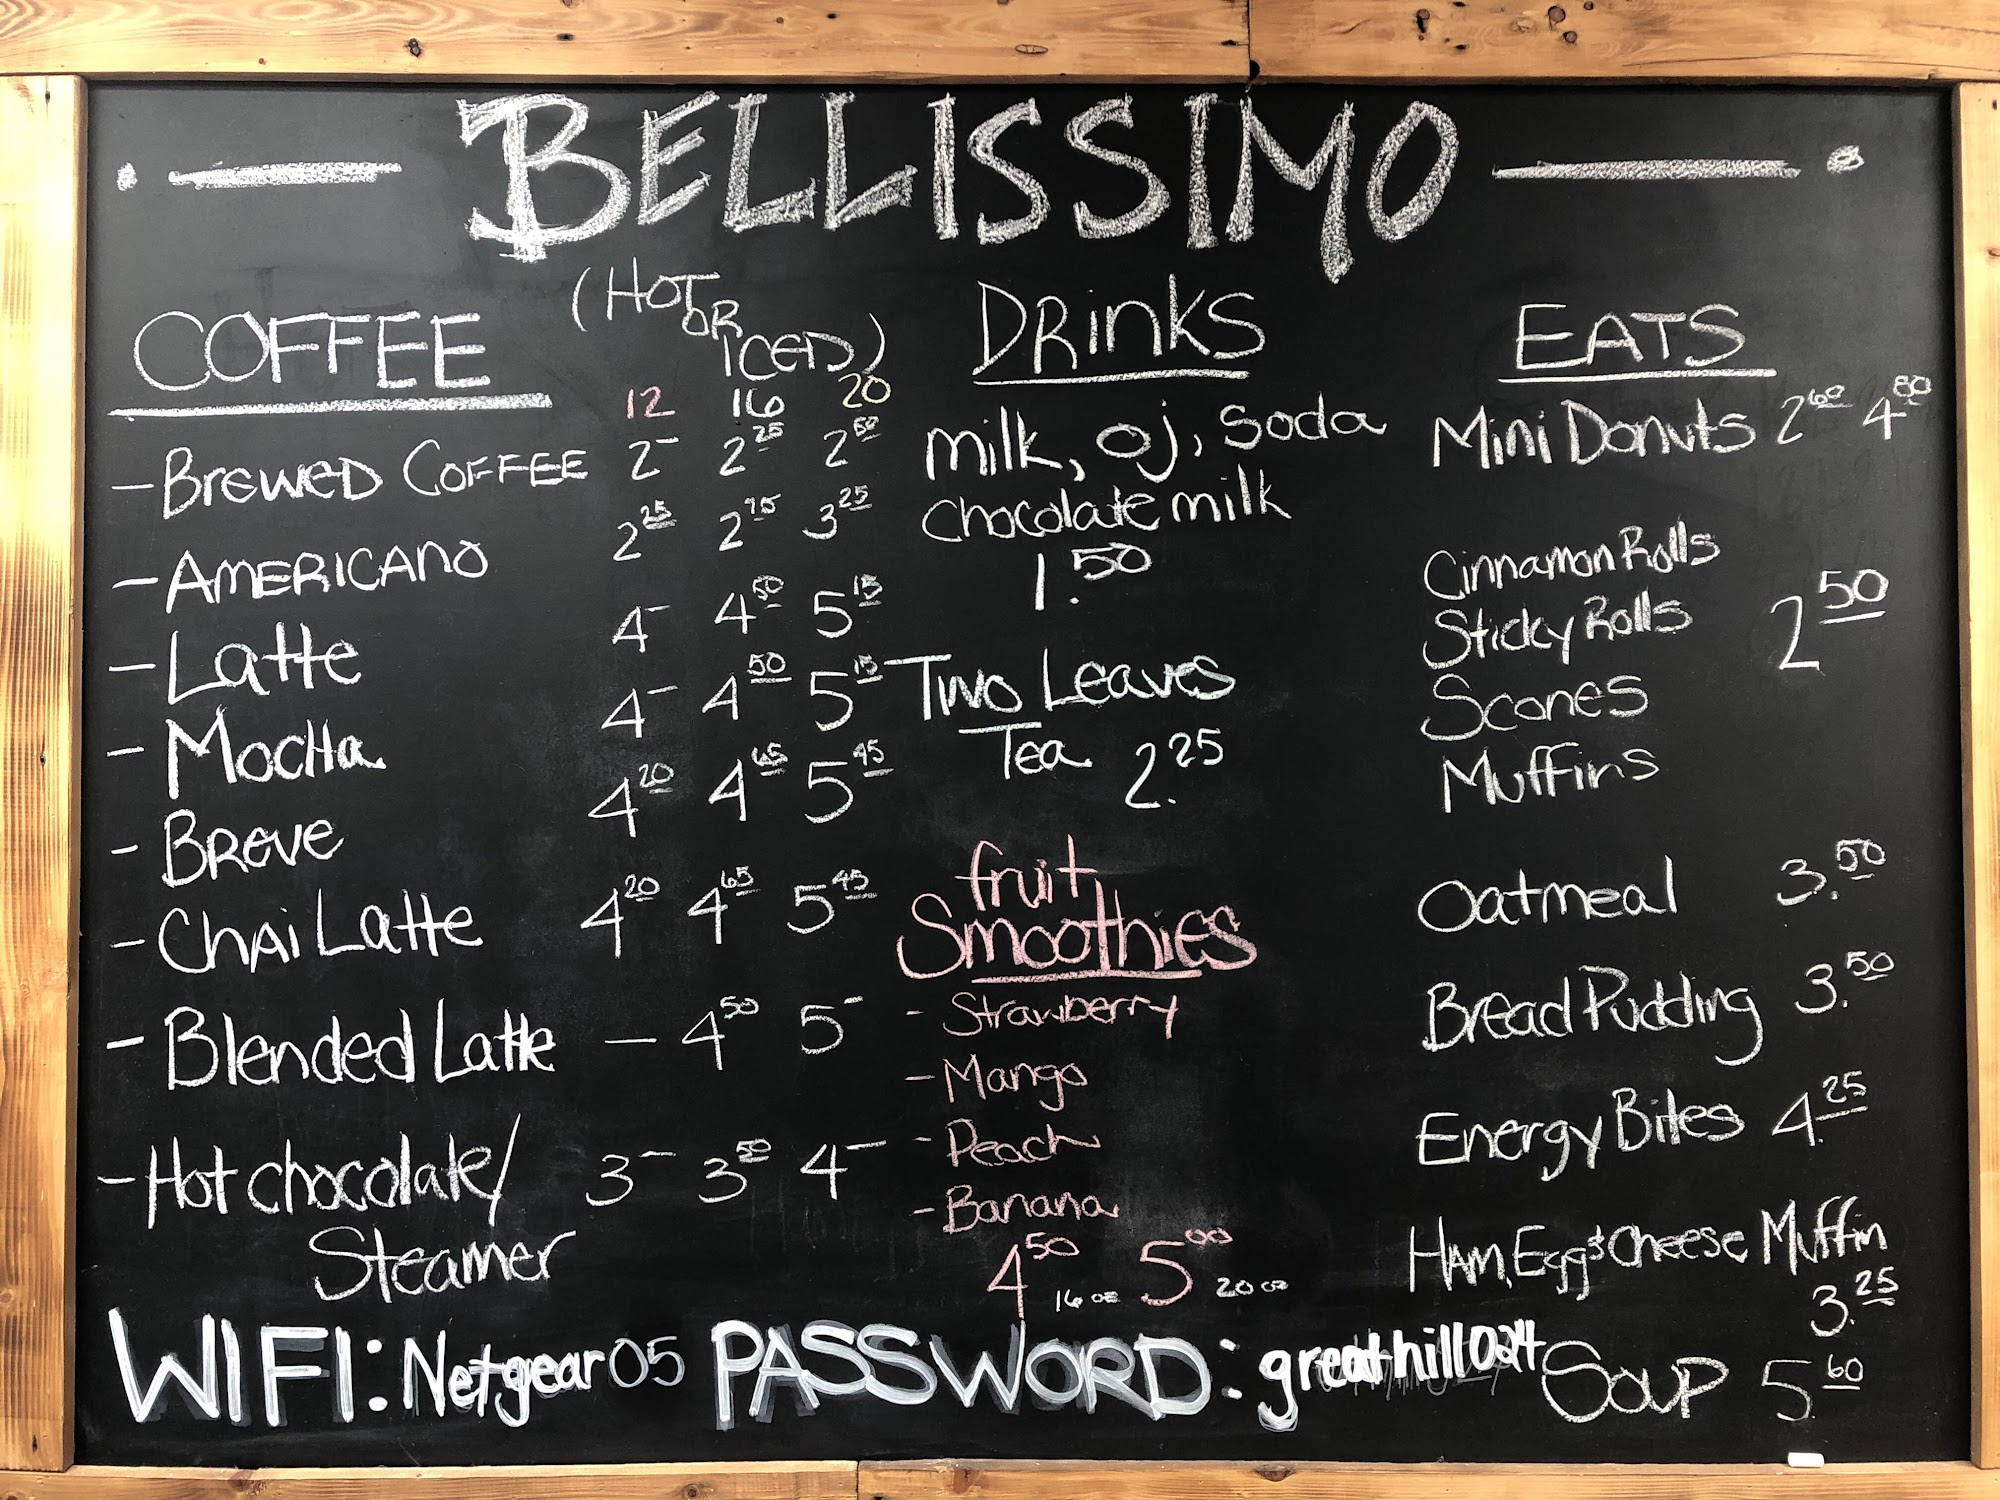 BELLISSIMO
COFFEE
(HOT OR ICED)
12 16 20
- BREWED COFFEE 2- 2.25 2.50
- AMERICANO 2.25 2.75 3.25
- Latte 4- 4.50 5.15
- Mocha 4- 4.50 5.15
- Breve 4.20 4.65 5.45
- Chai Latte 4.20 4.65 5.45
- Blended Latte — 4.50 5-
- Hot chocolate/ 3- 3.50 4-
Steamer
DRinKS
milk, oj, soda
chocolate milk
1.50
Two Leaves
Tea 2.25
fruit
Smoothies
- Strawberry
- Mango
- Peach
- Banana
4.50 16 oz 5.00 20 oz
EATS
Mini Donuts 2.60 4.80
Cinnamon Rolls
Sticky Rolls 2.50
Scones
Muffins
Oatmeal 3.50
Bread Pudding 3.50
Energy Bites 4.25
Ham, Egg & Cheese Muffin
3.25
Soup 5.60
WIFI: Netgear05 PASSWORD: greathill024